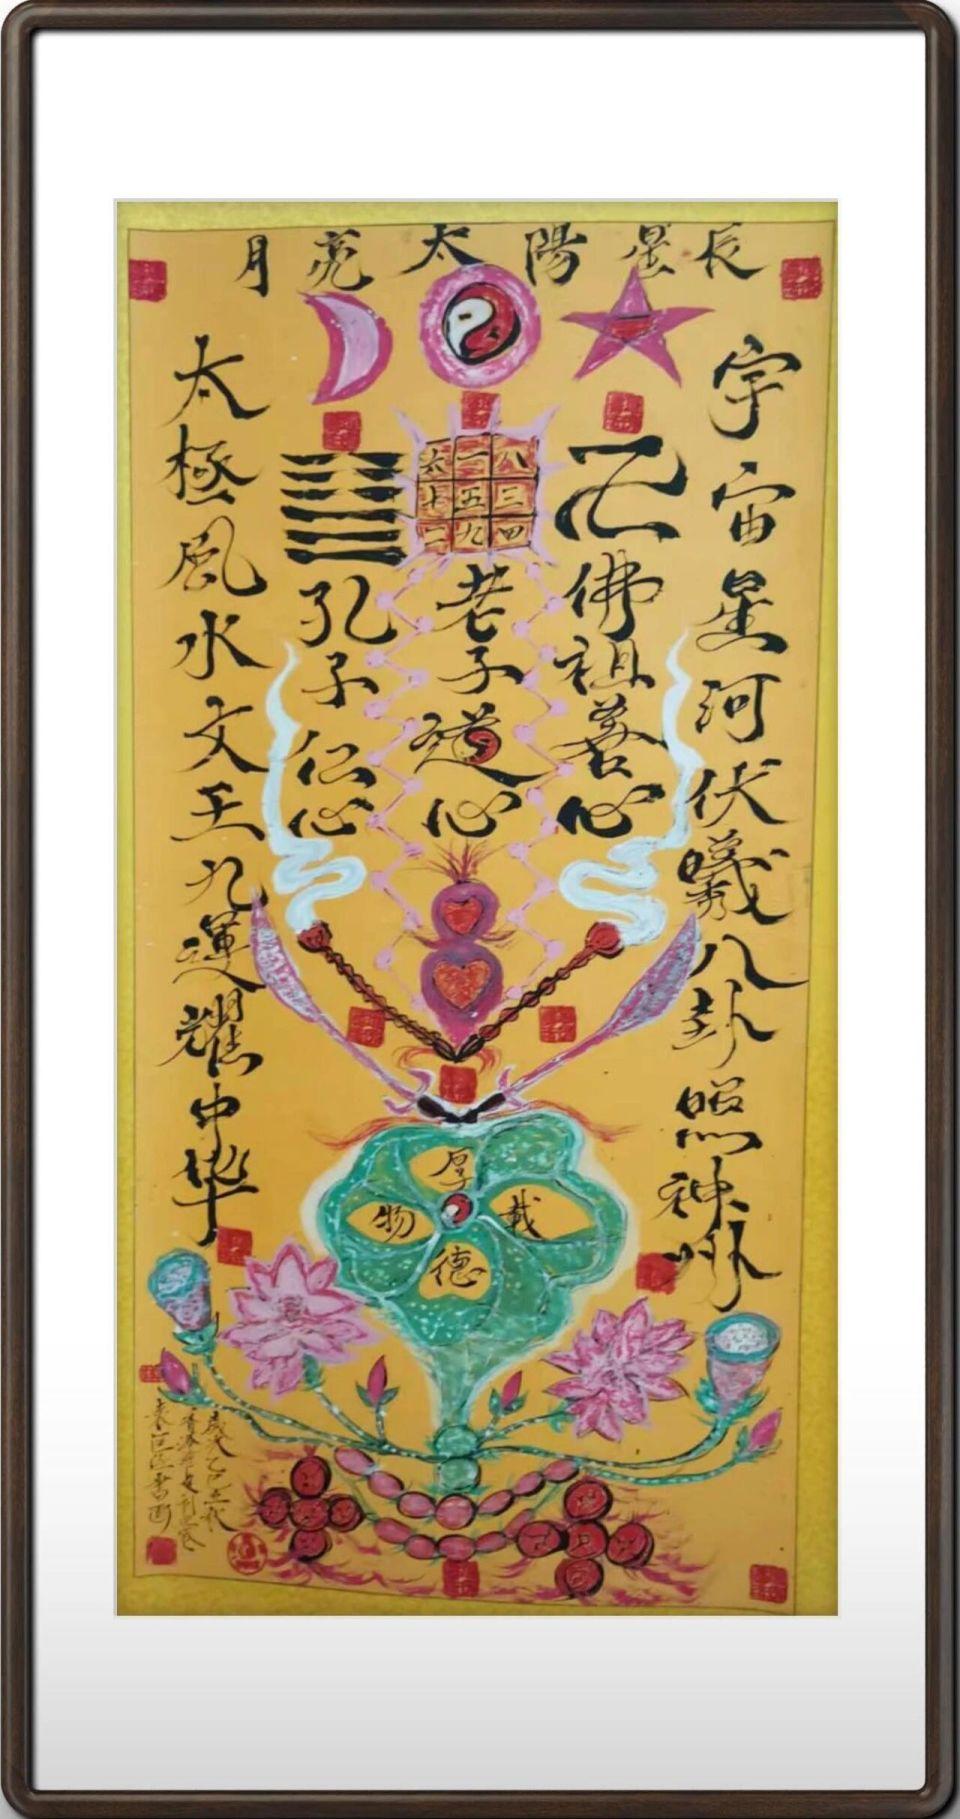 月亮太陽星辰
宇宙星河伏羲八卦照神州
佛祖善心
老子道心
孔子仁心
太極風水文王九運耀中华
六一八
七五三
二九四
厚德載物
歲次乙巳
香港
書画